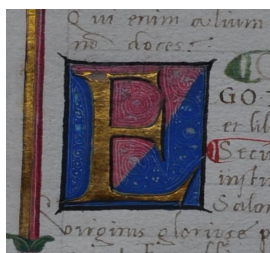 Qui enim alium
nō doces:
E GO
et lib
Secu
institu
Salom
virginis gloriose p